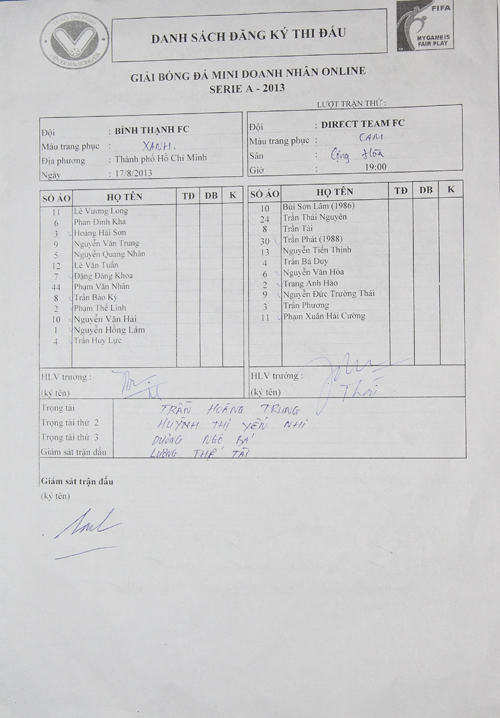 DANH SÁCH ĐĂNG KÝ THI ĐẤU
FIFA
MY GAME IS
FAIR PLAY
GIẢI BÓNG ĐÁ MINI DOANH NHÂN ONLINE
SERIE A - 2013
LƯỢT TRẬN THỨ :
Đội : BÌNH THẠNH FC
Màu trang phục : XANH.
Địa phương : Thành phố Hồ Chí Minh
Ngày : 17/8/2013
Đội : DIRECT TEAM FC
Màu trang phục : CAM
Sân : Cộng Hòa
Giờ : 19:00
SỐ ÁO HỌ TÊN TĐ DB K
11 Lê Vương Long
6 Phan Đình Kha
3 Hoàng Hải Sơn
9 Nguyễn Văn Trung
5 Nguyễn Quang Nhân
12 Lê Văn Tuấn
7 Đặng Đăng Khoa
44 Phạm Văn Nhân
8 Trần Bảo Kỳ
2 Phạm Thế Linh
10 Nguyễn Văn Hải
1 Nguyễn Hồng Lâm
4 Trần Huy Lực
SỐ ÁO HỌ TÊN TĐ DB K
10 Bùi Sơn Lâm (1986)
24 Trần Thái Nguyên
8 Trần Tài
30 Trần Phát (1988)
13 Nguyễn Tiến Thịnh
4 Trần Bá Duy
6 Nguyễn Văn Hòa
2 Trang Anh Hào
9 Nguyễn Đức Trường Thái
3 Trần Phương
11 Phạm Xuân Hải Cường
HLV trưởng :
(ký tên)
HLV trưởng :
(ký tên) Thái
Trọng tài TRẦN HOÀNG TRUNG
Trọng tài thứ 2 HUỲNH THỊ YẾN NHI
Trọng tài thứ 3 DƯƠNG NGÔ BÁ
Giám sát trận đấu LƯƠNG THẾ TÀI
Giám sát trận đấu
(ký tên)